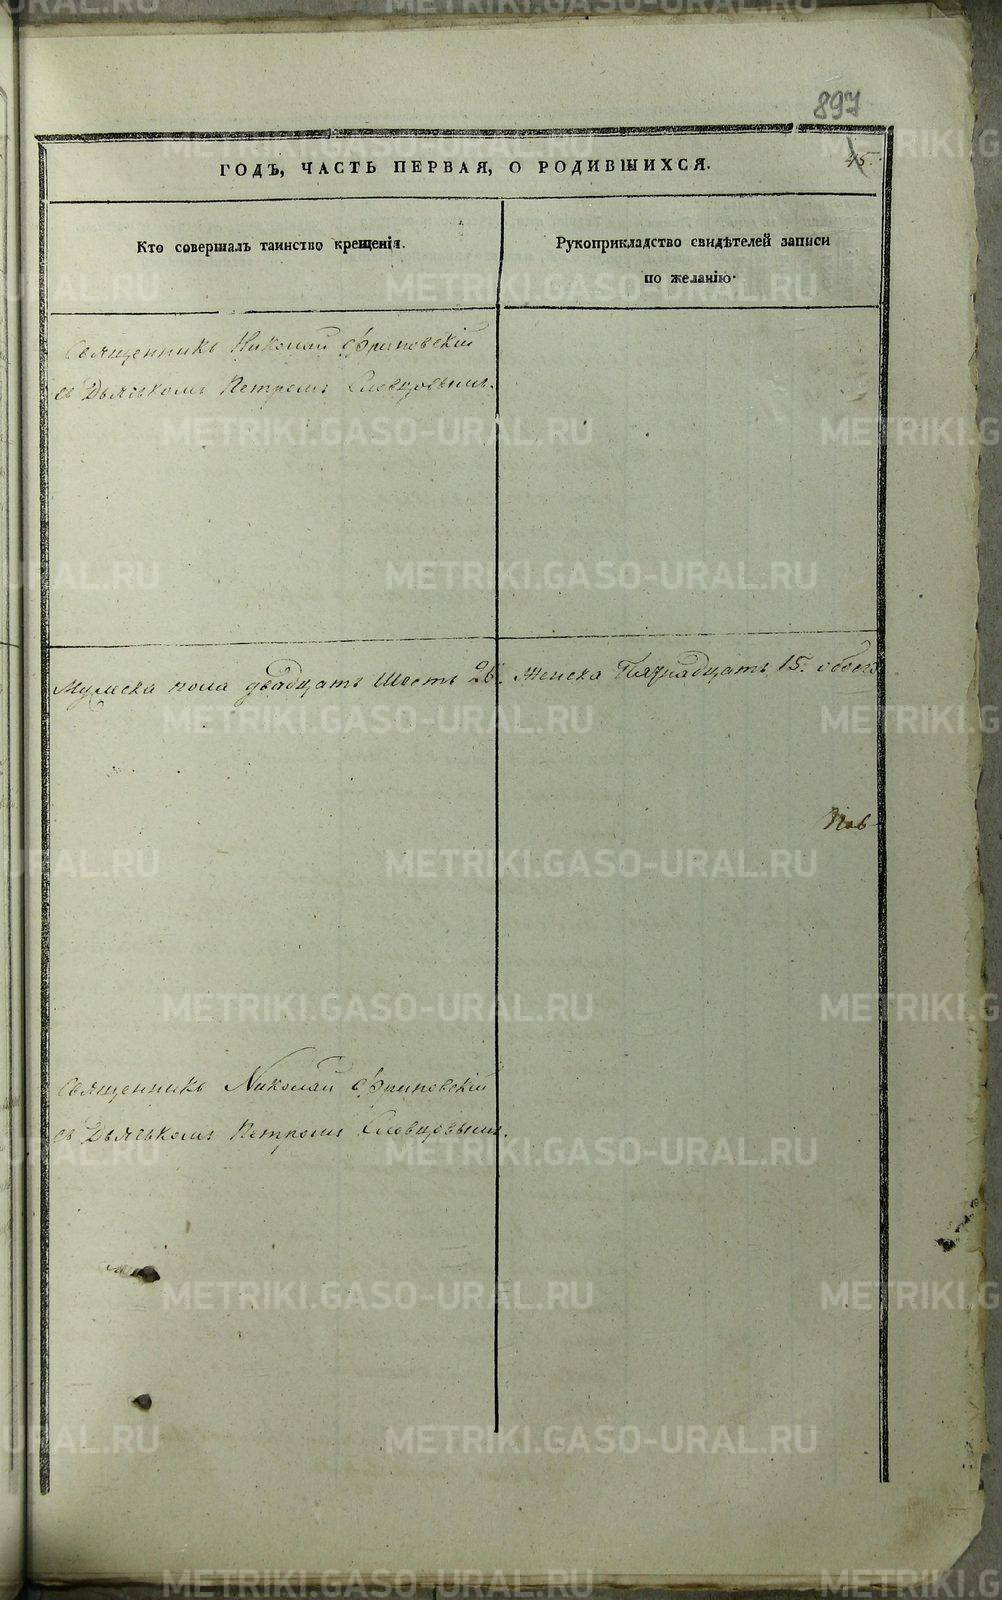 897
45.
ГОДЪ, ЧАСТЬ ПЕРВАЯ, О РОДИВШИХСЯ.
Кто совершалъ таинство крещенія.
Рукоприкладство свидѣтелей записи
по желанію.
Священникъ Николай
съ Дьячкомъ Петромъ Словцовымъ.
Мужеска пола двадцать шесть 26. Женска Пятнадцать 15. обоего
Священникъ Николай
съ Дьячкомъ Петромъ Словцовымъ.
METRIKI.GASO-URAL.RU